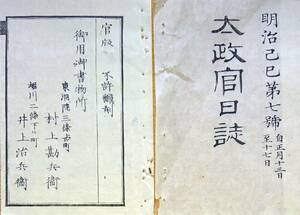 明治己巳第七號
自正月十三日
至十七日
太政官日誌
官版 不許翻刻
御用御書物所
東洞院三條上ル町
村上勘兵衞
堀川二條下ル町
井上治兵衞